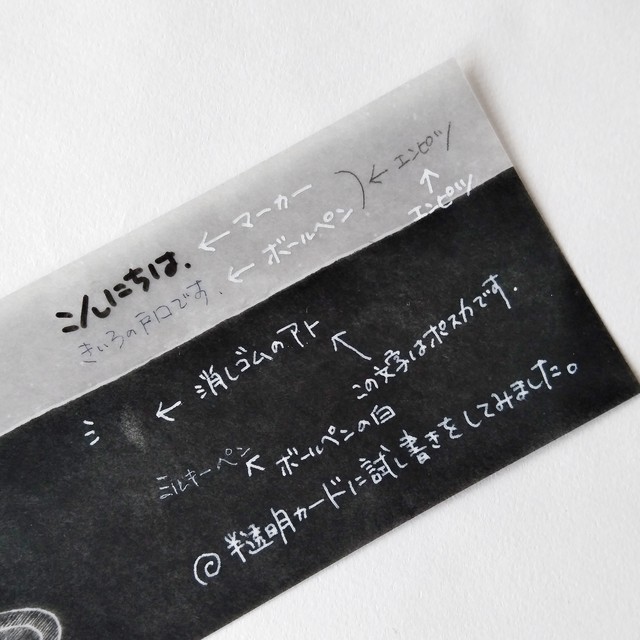 こんにちは. ← マーカー
) ← エンピツ
きいろの戸口です. ← ボールペン
↑
エンピツ
ミ ← 消しゴムのアト
↖
この文字はポスカです.
ミルキーペン ↖ ボールペンの白
@半透明カードに試し書きをしてみました。